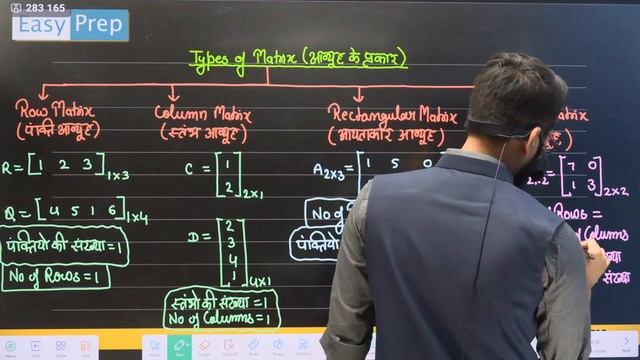 283 165
Easy Prep
Types of Matrix (आव्यूह के प्रकार)
Row Matrix
(पंक्ति आव्यूह)
R = [1 2 3]1×3
Q = [4 5 1 6]1×4
पंक्तियो की संख्या = 1
No of Rows = 1
Column Matrix
(स्तंभ आव्यूह)
C = [1
2]2×1
D = [2
3
4
1]4×1
स्तंभो की संख्या = 1
No of Columns = 1
Rectangular Matrix
(आयताकार आव्यूह)
A2×3 = [1 5 0
No of
पंक्तियो
Matrix
= [7 0
1 3]2×2
Rows =
of Columns
संख्या
संख्या